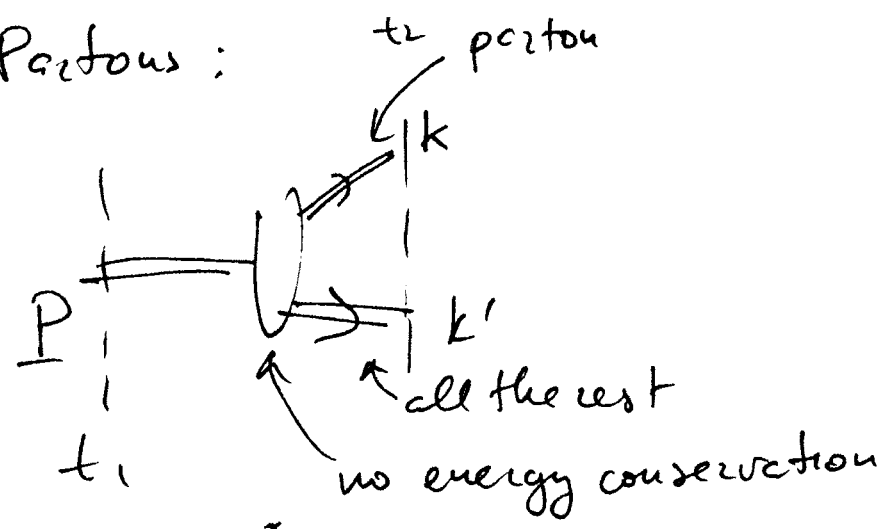 Partons :
t2 parton
k
P
k'
all the rest
t1
no energy conservation